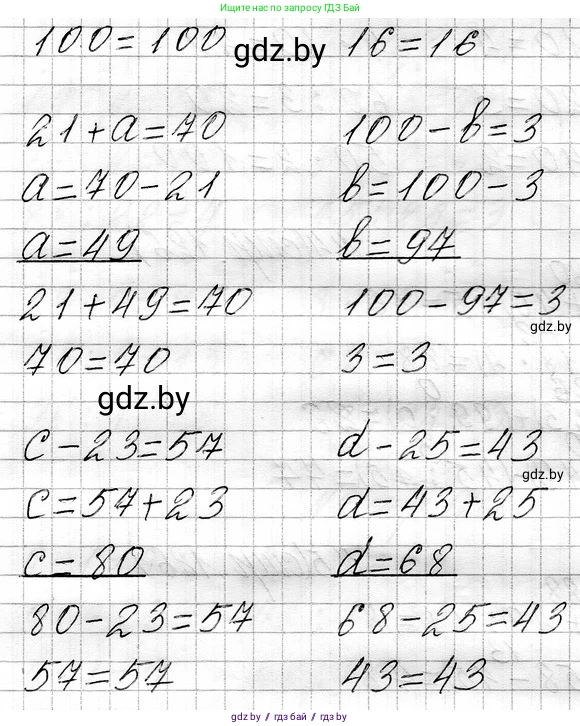 Ищите нас в поисковике по ГДЗ Бай
100=100
gdz.by
16=16
21+a=70
a=70-21
a=49
21+49=70
70=70
100-b=3
b=100-3
b=97
100-97=3
gdz.by
3=3
gdz.by
c-23=57
c=57+23
c=80
80-23=57
57=57
d-25=43
gdz.by
d=43+25
d=68
68-25=43
43=43
gdz.by // гдз бай // gdz.by // гдз бай